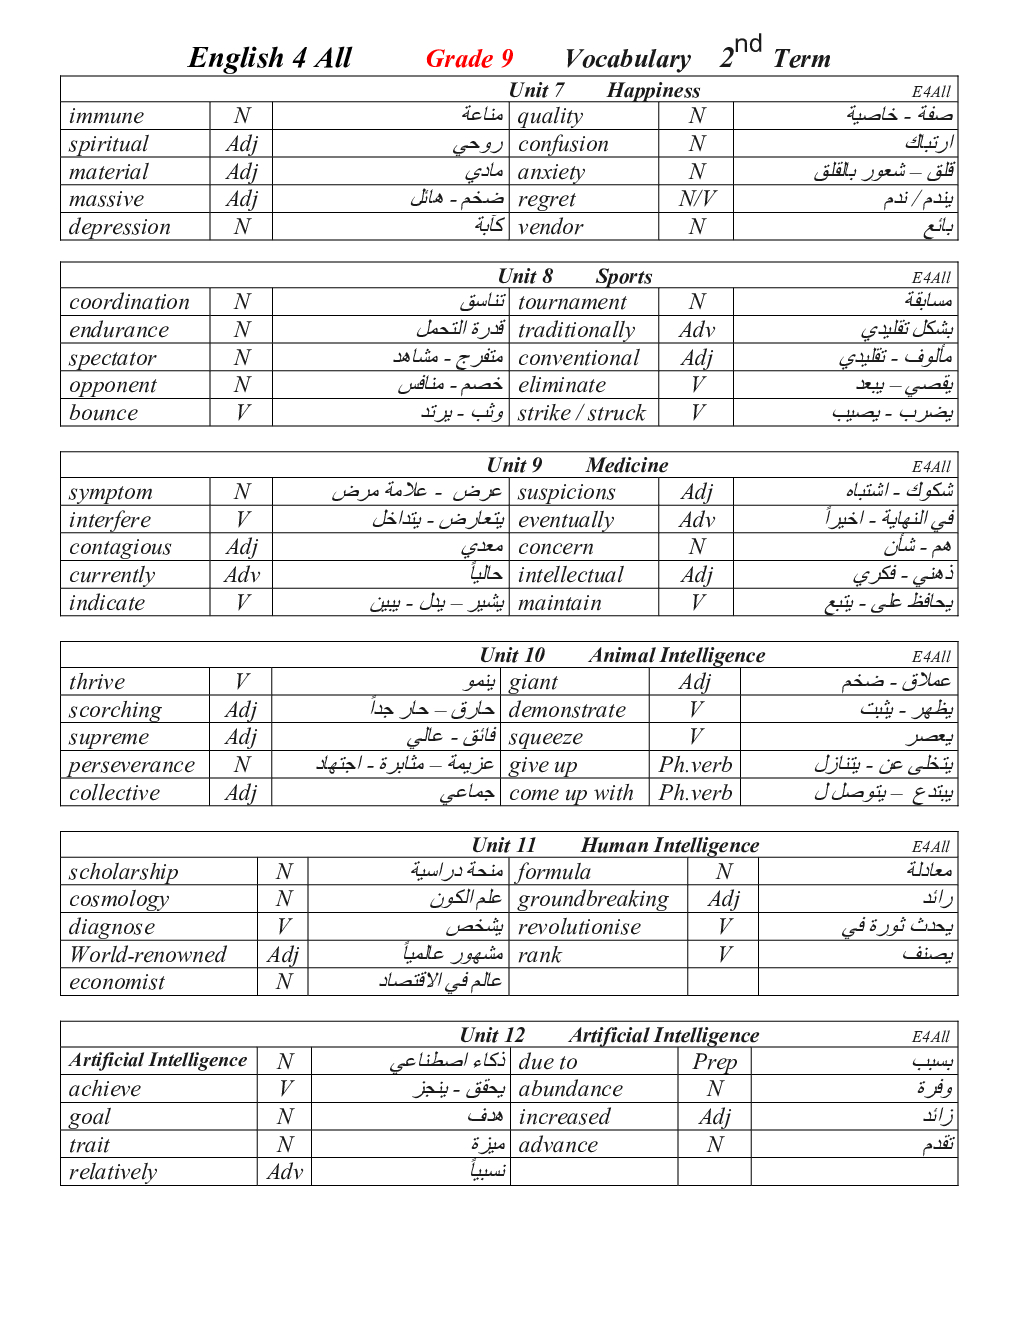 English 4 All Grade 9 Vocabulary 2nd Term
Unit 7 Happiness E4All
immune N مناعة quality N صفة - خاصية
spiritual Adj روحي confusion N ارتباك
material Adj مادي anxiety N قلق – شعور بالقلق
massive Adj ضخم - هائل regret N/V يندم / ندم
depression N كآبة vendor N بائع
Unit 8 Sports E4All
coordination N تناسق tournament N مسابقة
endurance N قدرة التحمل traditionally Adv بشكل تقليدي
spectator N متفرج - مشاهد conventional Adj مألوف - تقليدي
opponent N خصم - منافس eliminate V يقصي – يبعد
bounce V وثب - يرتد strike / struck V يضرب - يصيب
Unit 9 Medicine E4All
symptom N عرض - علامة مرض suspicions Adj شكوك - اشتباه
interfere V يتعارض - يتداخل eventually Adv في النهاية - اخيراً
contagious Adj معدي concern N هم - شأن
currently Adv حالياً intellectual Adj ذهني - فكري
indicate V يشير – يدل - يبين maintain V يحافظ على - يتبع
Unit 10 Animal Intelligence E4All
thrive V ينمو giant Adj عملاق - ضخم
scorching Adj حارق – حار جداً demonstrate V يظهر - يثبت
supreme Adj فائق - عالي squeeze V يعصر
perseverance N عزيمة – مثابرة - اجتهاد give up Ph.verb يتخلى عن - يتنازل
collective Adj جماعي come up with Ph.verb يبتدع – يتوصل ل
Unit 11 Human Intelligence E4All
scholarship N منحة دراسية formula N معادلة
cosmology N علم الكون groundbreaking Adj رائد
diagnose V يشخص revolutionise V يحدث ثورة في
World-renowned Adj مشهور عالمياً rank V يصنف
economist N عالم في الاقتصاد
Unit 12 Artificial Intelligence E4All
Artificial Intelligence N ذكاء اصطناعي due to Prep بسبب
achieve V يحقق - ينجز abundance N وفرة
goal N هدف increased Adj زائد
trait N ميزة advance N تقدم
relatively Adv نسبياً